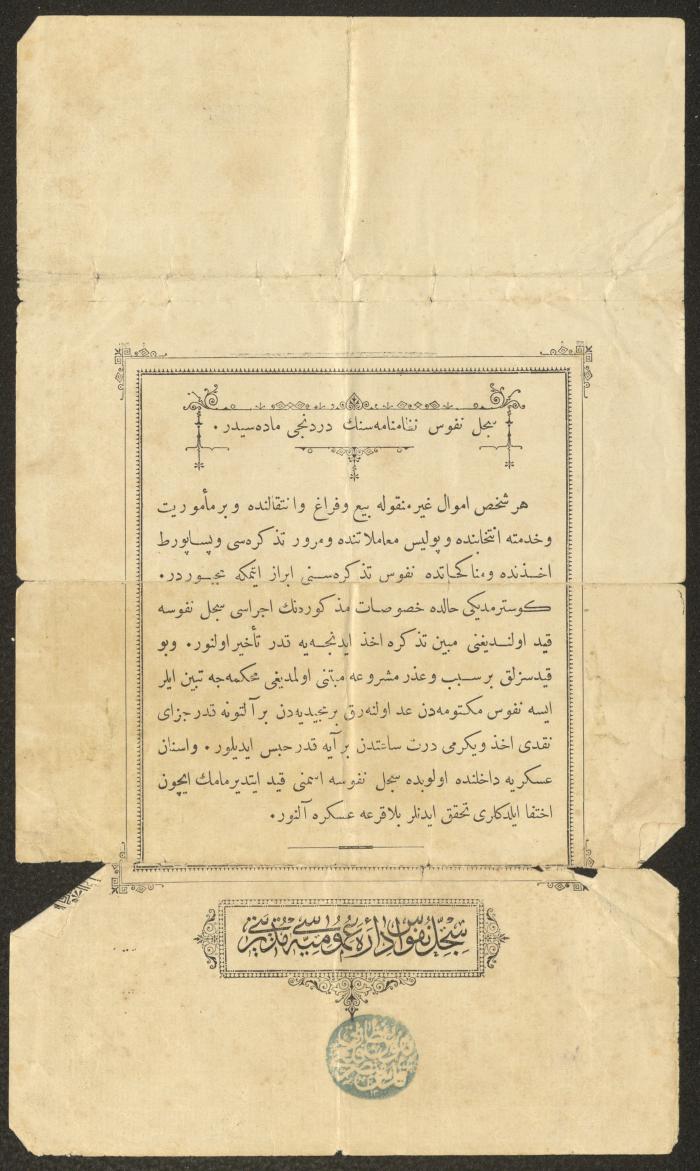 سجل نفوس نظامنامه‌سنك دردنجی ماده‌سیدر ٠
هر شخص اموال غیر منقوله بیع وفراغ وانتقالنده وبر مأموریت
وخدمته انتخابنده وپولیس معاملاتنده ومرور تذكره‌سی وپساپورط
اخذنده ومناكحاتده نفوس تذكره‌سنی ابراز ایتمكه مجبوردر ٠
كوسترمدیكی حالده خصوصات مذكوره‌نك اجراسی سجل نفوسه
قید اولندیغنی مبین تذكره اخذ ایدنجه‌یه قدر تأخیر اولنور ٠ وبو
قیدسزلق بر سبب وعذر مشروعه مبتنی اولمدیغی محكمه‌جه تبین ایلر
ایسه نفوس مكتومه‌دن عد اولنه‌رق بر مجیدیه‌دن بر آلتونه قدر جزای
نقدی اخذ ویكرمی درت ساعتدن بر آیه قدر حبس ایدیلور ٠ واسنان
عسكریه داخلنده اولوبده سجل نفوسه اسمنی قید ایتدیرمامك ایچون
اختفا ایلدكلری تحقق ایدنلر بلاقرعه عسكره آلنور ٠
سجل نفوس اداره عمومیه‌سی مدیریتی